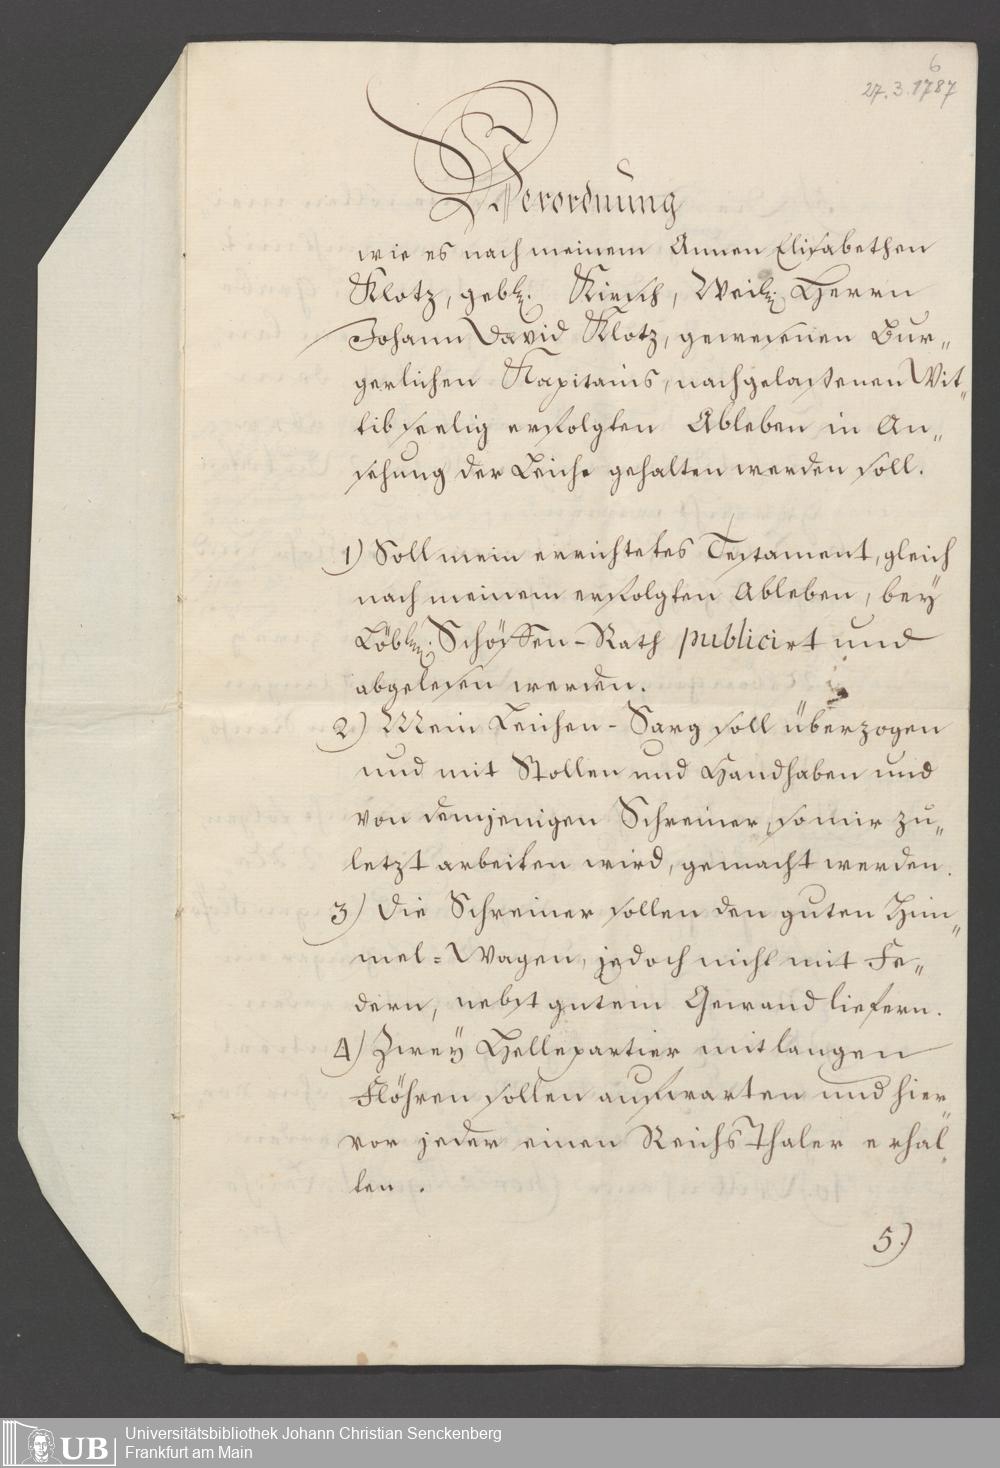 6
27.3.1787
Verordnung
wie es nach meinem Annen Elisabethen
Klotz, gebh. Kirsch, Weil. Herrn
Johann David Klotz, gewesenen Bur„
gerlichen Kapitains, nachgelassenen Wit„
tib seelig erfolgten Ableben in An„
sehung der Leiche gehalten werden soll.
1) Soll mein errichtetes Testament, gleich
nach meinem erfolgten Ableben, bey
Löbl. Schöffen-Rath publicirt und
abgelesen werden.
2) Mein Leichen-Sarg soll überzogen
und mit Stollen und Handhaben und
von demjenigen Schreiner, so mir zu„
letzt arbeiten wird, gemacht werden.
3) Die Schreiner sollen den guten Him„
mel=Wagen, jedoch nicht mit Fe„
dern, nebst gutem Gewand liefern.
4) Zwey Hellepartier mit langen
Flöhren sollen aufwarten und hier„
vor jeder einen Reichs Thaler erhal„
ten.
5)
UB
Universitätsbibliothek Johann Christian Senckenberg
Frankfurt am Main